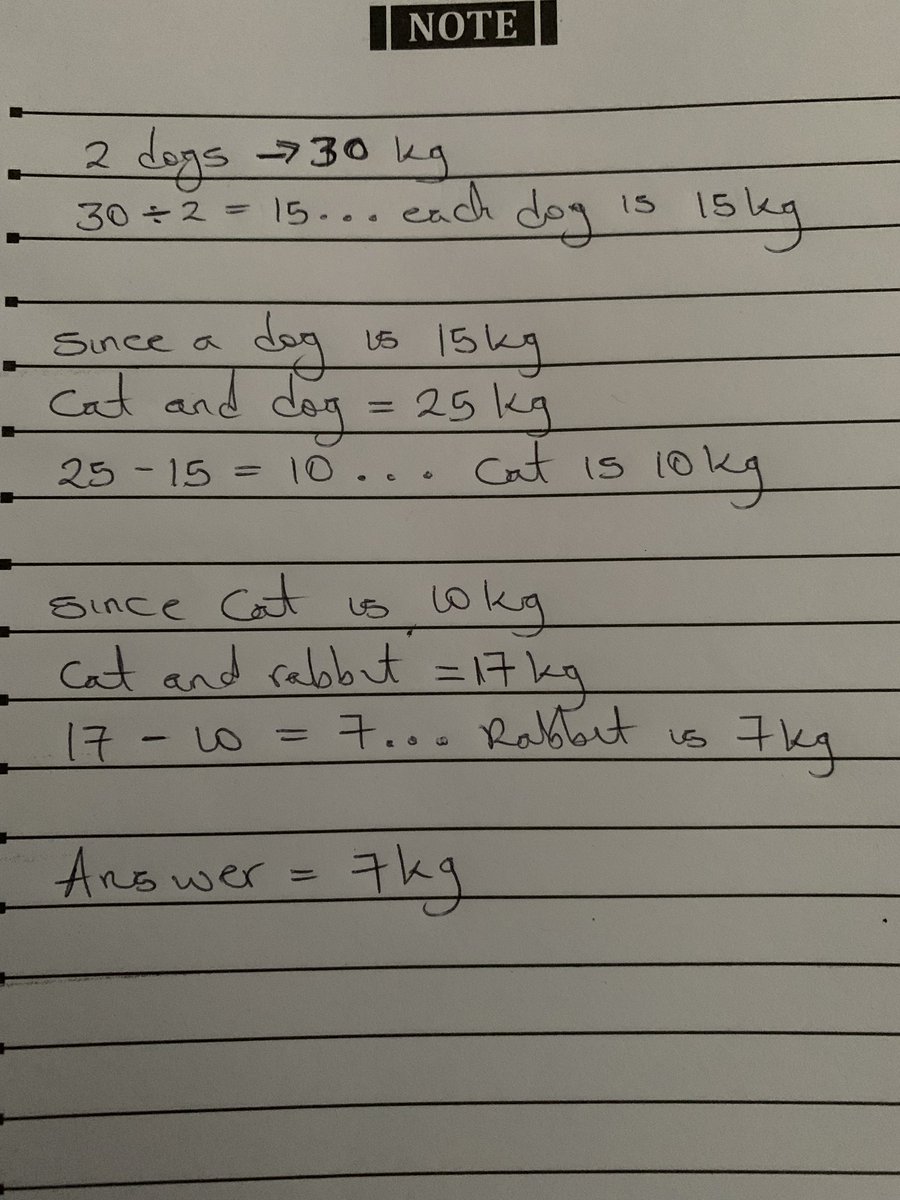 NOTE
2 dogs → 30 kg
30 ÷ 2 = 15... each dog is 15kg
Since a dog is 15kg
Cat and dog = 25 kg
25 - 15 = 10 ... Cat is 10kg
Since Cat is 10kg
Cat and rabbit = 17kg
17 - 10 = 7... Rabbit is 7kg
Answer = 7kg